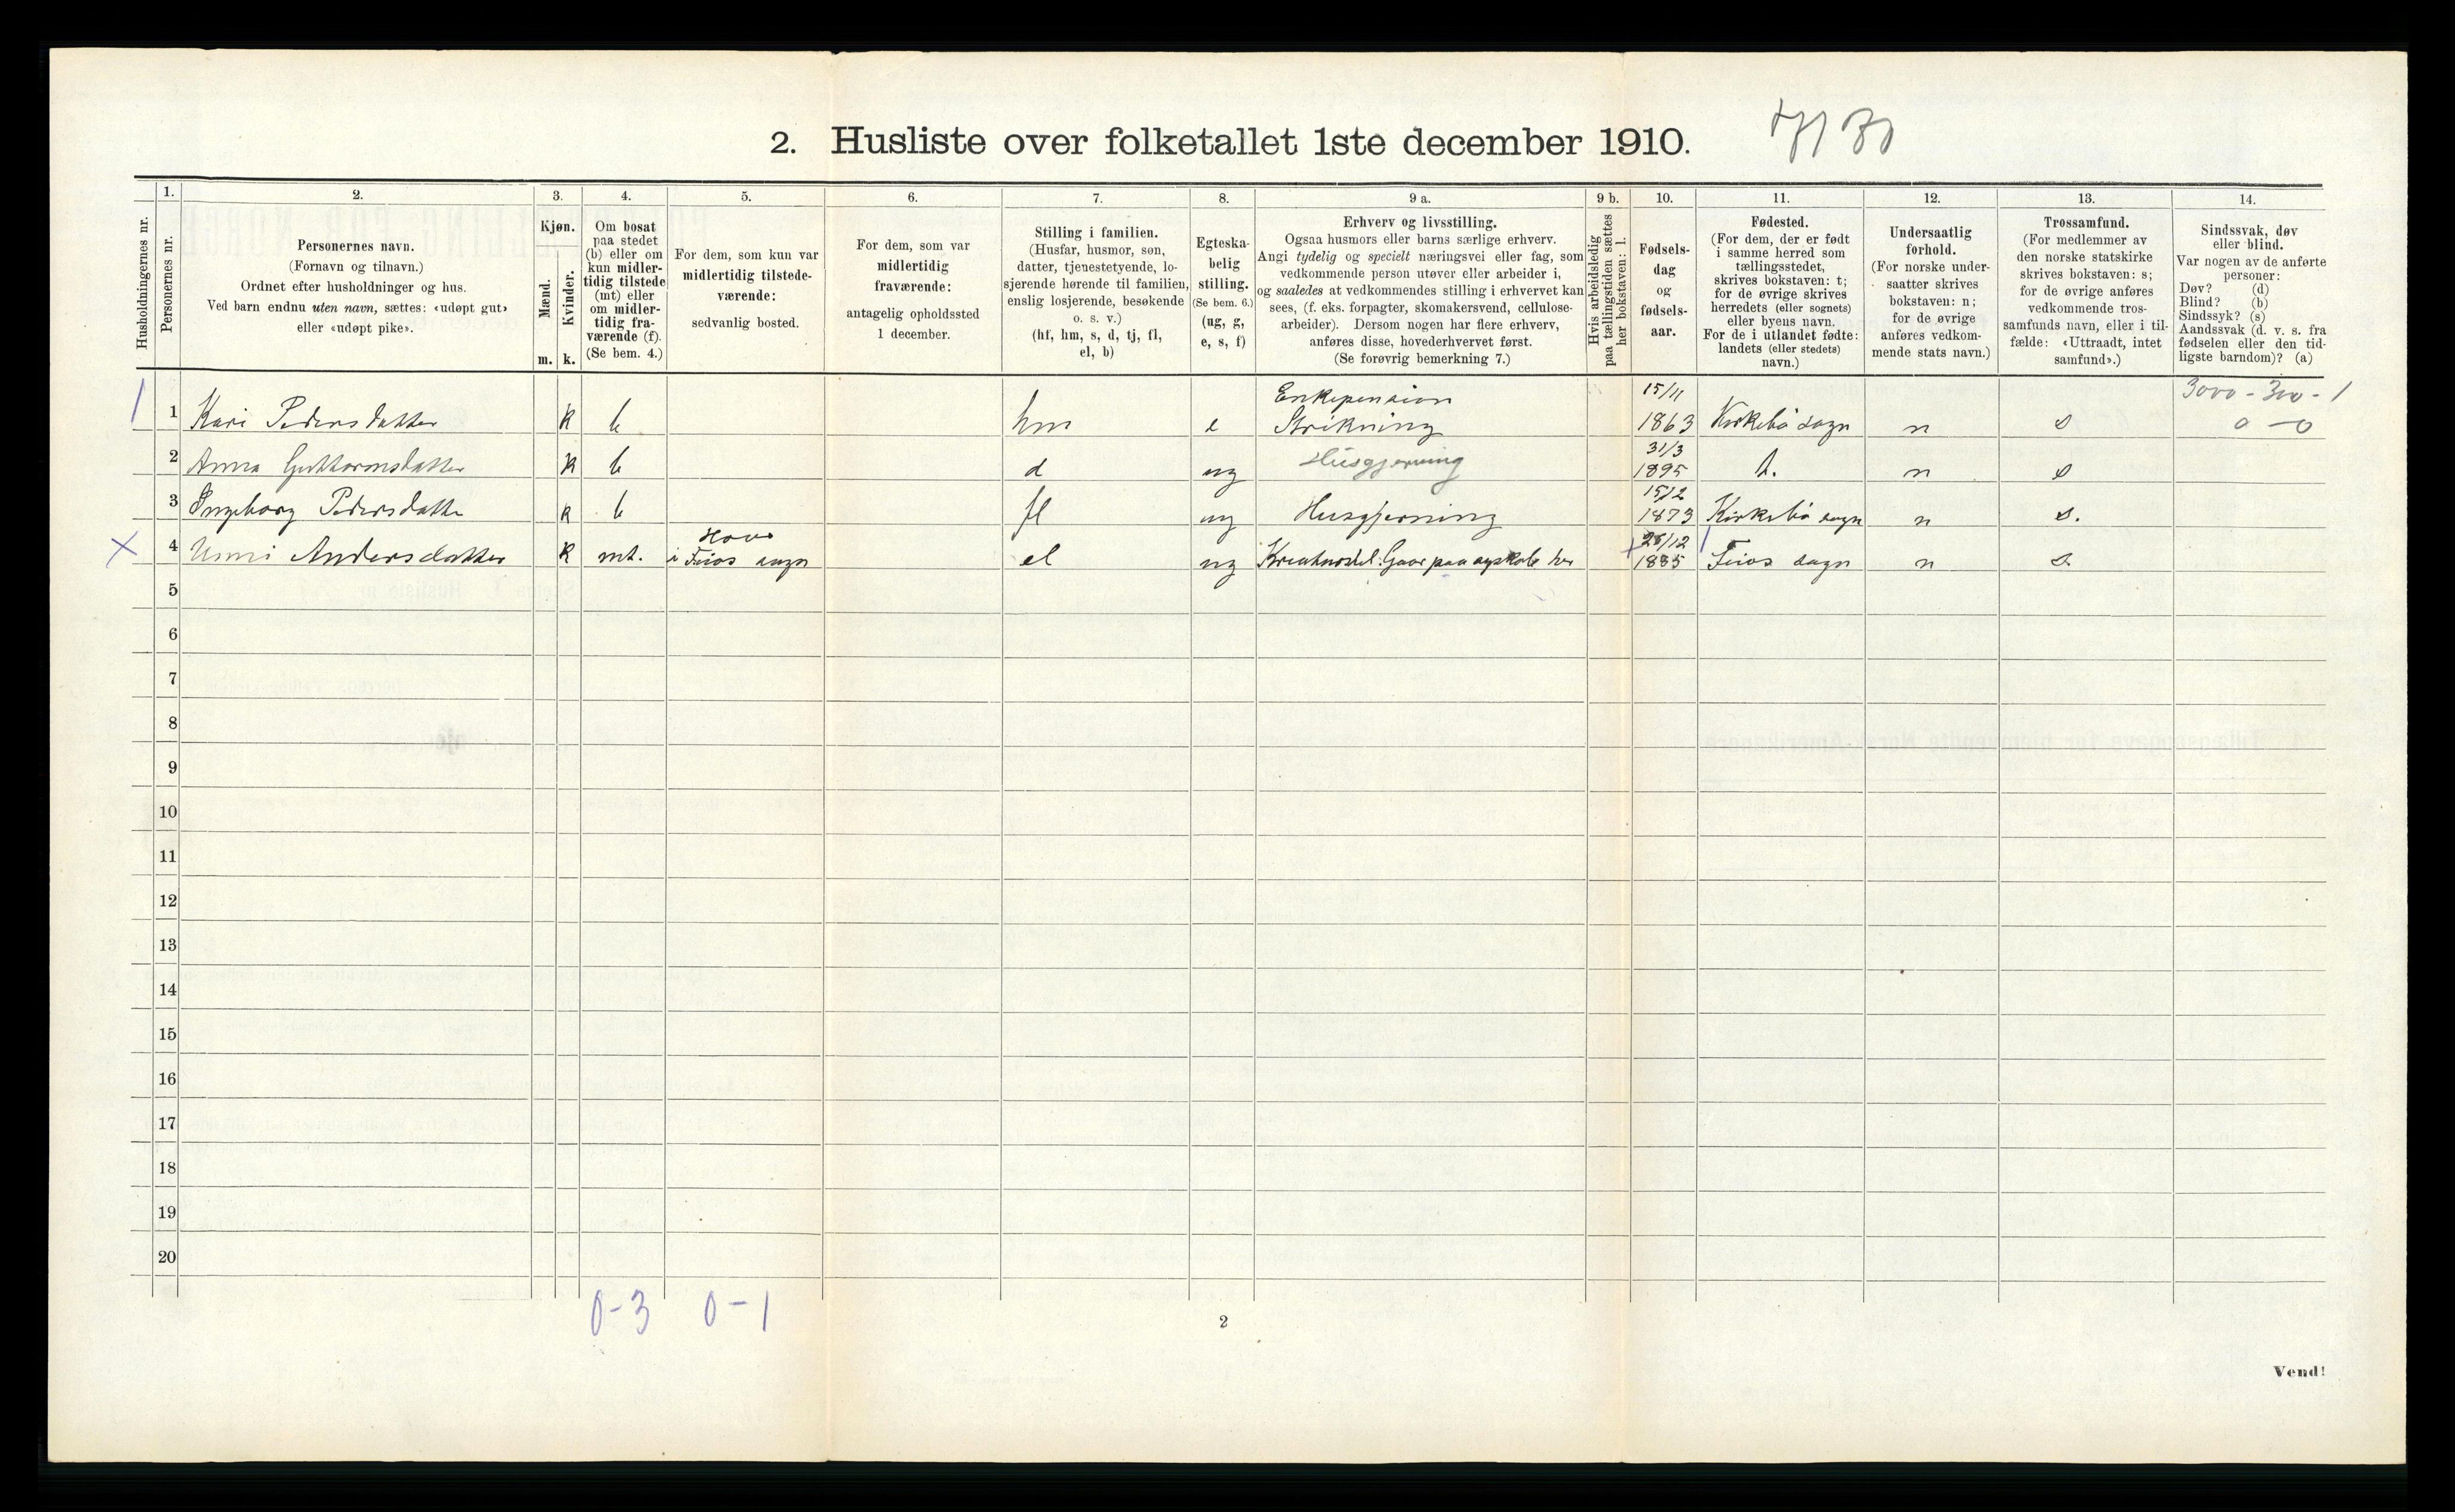 2. Husliste over folketallet 1ste december 1910.
1. 2. 3. 4. 5. 6. 7. 8. 9 a. 9 b. 10. 11. 12. 13. 14.
Husholdningernes nr.
Personernes nr.
Personernes navn.
(Fornavn og tilnavn.)
Ordnet efter husholdninger og hus.
Ved barn endnu uten navn, sættes: «udøpt gut»
eller «udøpt pike».
Kjøn.
Mænd.
Kvinder.
m. k.
Om bosat
paa stedet
(b) eller om
kun midler-
tidig tilstede
(mt) eller
om midler-
tidig fra-
værende (f).
(Se bem. 4.)
For dem, som kun var
midlertidig tilstede-
værende:
sedvanlig bosted.
For dem, som var
midlertidig
fraværende:
antagelig opholdssted
1 december.
Stilling i familien.
(Husfar, husmor, søn,
datter, tjenestetyende, lo-
sjerende hørende til familien,
enslig losjerende, besøkende
o. s. v.)
(hf, hm, s, d, tj, fl,
el, b)
Egteska-
belig
stilling.
(Se bem. 6.)
(ug, g,
e, s, f)
Erhverv og livsstilling.
Ogsaa husmors eller barns særlige erhverv.
Angi tydelig og specielt næringsvei eller fag, som
vedkommende person utøver eller arbeider i,
og saaledes at vedkommendes stilling i erhvervet kan
sees, (f. eks. forpagter, skomakersvend, cellulose-
arbeider). Dersom nogen har flere erhverv,
anføres disse, hovederhvervet først.
(Se forøvrig bemerkning 7.)
Hvis arbeidsledig
paa tællingstiden sættes
her bokstaven: l.
Fødsels-
dag
og
fødsels-
aar.
Fødested.
(For dem, der er født
i samme herred som
tællingsstedet,
skrives bokstaven: t;
for de øvrige skrives
herredets (eller sognets)
eller byens navn.
For de i utlandet fødte:
landets (eller stedets)
navn.)
Undersaatlig
forhold.
(For norske under-
saatter skrives
bokstaven: n;
for de øvrige
anføres vedkom-
mende stats navn.)
Trossamfund.
(For medlemmer av
den norske statskirke
skrives bokstaven: s;
for de øvrige anføres
vedkommende tros-
samfunds navn, eller i til-
fælde: «Uttraadt, intet
samfund».)
Sindssvak, døv
eller blind.
Var nogen av de anførte
personer:
Døv? (d)
Blind? (b)
Sindssyk? (s)
Aandssvak (d. v. s. fra
fødselen eller den tid-
ligste barndom)? (a)
Enkepension 15/11 3000 - 300 - 1
1 1 Kari Pedersdatter k b hm e Strikning 1863 Kirkebø sogn n s 0 - 0
31/3
2 Anna Guttormsdatter k b d ug Husgjerning 1895 t. n s
15/2
3 Ingeborg Pedersdatter k b fl ug Husgjerning 1873 Kirkebø sogn n s.
X 4 Unni Andersdatter k mt. i Feios sogn el ug 1885 Feios sogn n s.
5
6
7
8
9
10
11
12
13
14
15
16
17
18
19
20
0-3 0-1
2
Vend!